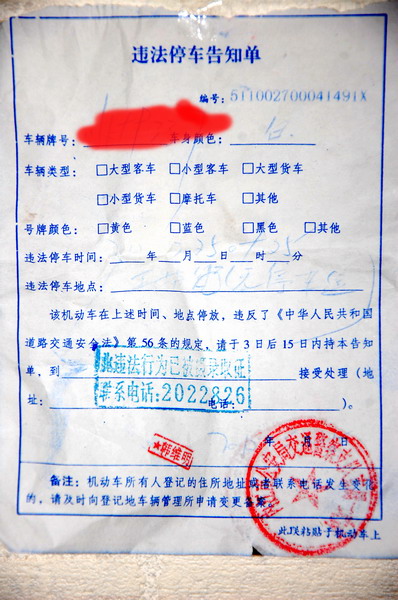 违法停车告知单
编号: 511002700041491X
车辆牌号: 车身颜色: 白
车辆类型: □大型客车 □小型客车 □大型货车
□小型货车 □摩托车 □其他
号牌颜色: □黄色 □蓝色 □黑色 □其他
违法停车时间: 年 月 日 时 分
违法停车地点:
该机动车在上述时间、地点停放,违反了《中华人民共和国
道路交通安全法》第56条的规定,请于3日后15日内持本告知
单,到 接受处理(地
址: 电话: )。
违法行为已被摄录取证
联系电话:2022826
韩维明
年 月 日
备注:机动车所有人登记的住所地址或者联系电话发生变化
的,请及时向登记地车辆管理所申请变更备案。
此联粘贴于机动车上